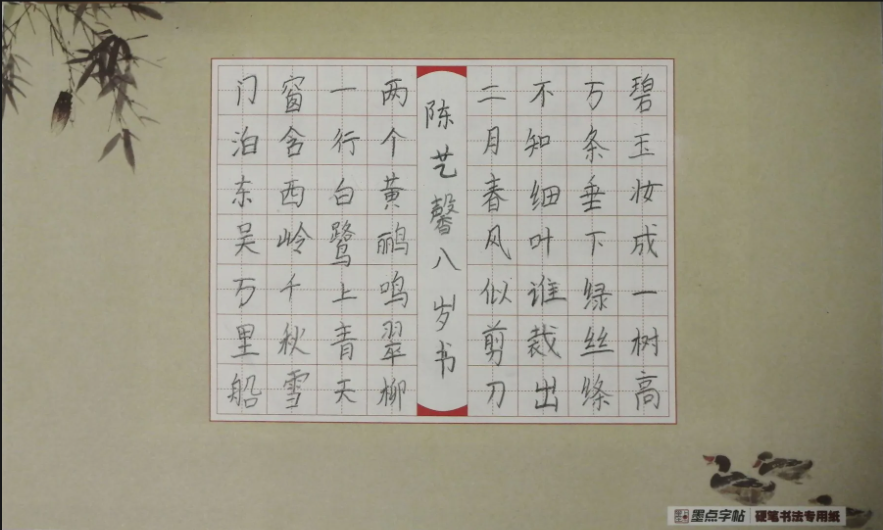 碧玉妆成一树高
万条垂下绿丝绦
不知细叶谁裁出
二月春风似剪刀
陈艺馨八岁书
两个黄鹂鸣翠柳
一行白鹭上青天
窗含西岭千秋雪
门泊东吴万里船
墨点字帖 硬笔书法专用纸